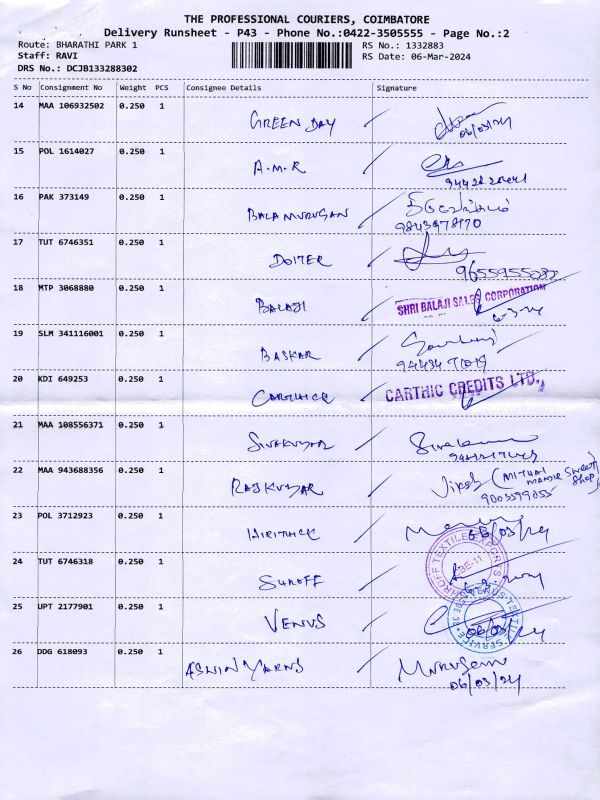 THE PROFESSIONAL COURIERS, COIMBATORE
Delivery Runsheet - P43 - Phone No.:0422-3505555 - Page No.:2
Route: BHARATHI PARK 1 RS No.: 1332883
Staff: RAVI RS Date: 06-Mar-2024
DRS No.: DCJB133288302
S No Consignment No Weight PCS Consignee Details Signature
14 MAA 106932502 0.250 1 GREEN DAY
06/03/24
15 POL 1614027 0.250 1 A.M.R
16 PAK 373149 0.250 1 BALAMURUGAN
9843978170
17 TUT 6746351 0.250 1 DOITER
9655955083
18 MTP 3068880 0.250 1 BALAJI SHRI BALAJI SALES CORPORATION
6-3-24
19 SLM 341116001 0.250 1 BASKAR
20 KDI 649253 0.250 1 CARTHICK CARTHIC CREDITS LTD.,
21 MAA 108556371 0.250 1 SIVAKUMAR
22 MAA 943688356 0.250 1 RAJKUMAR (MITHAI MANDIR Sweet Shop)
9003599055
23 POL 3712923 0.250 1 HIRITHCK
06/03/24
24 TUT 6746318 0.250 1 SHROFF SHROFF TEXTILE EXPORTS
25 UPT 2177901 0.250 1 VENUS VENUS TEXTILE SERVICE
06/03/24
26 DDG 618093 0.250 1 ASWIN YARNS Murugan
06/03/24